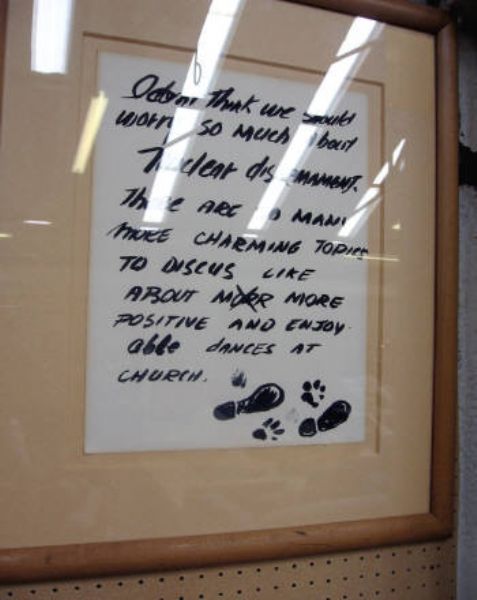 I don't think we should
worry so much about
Nuclear disarmament.
There ARE SO MANY
MORE CHARMING TOPICS
TO DISCUS LIKE
ABOUT MORE
POSITIVE AND ENJOY-
able DANCES AT
CHURCH.